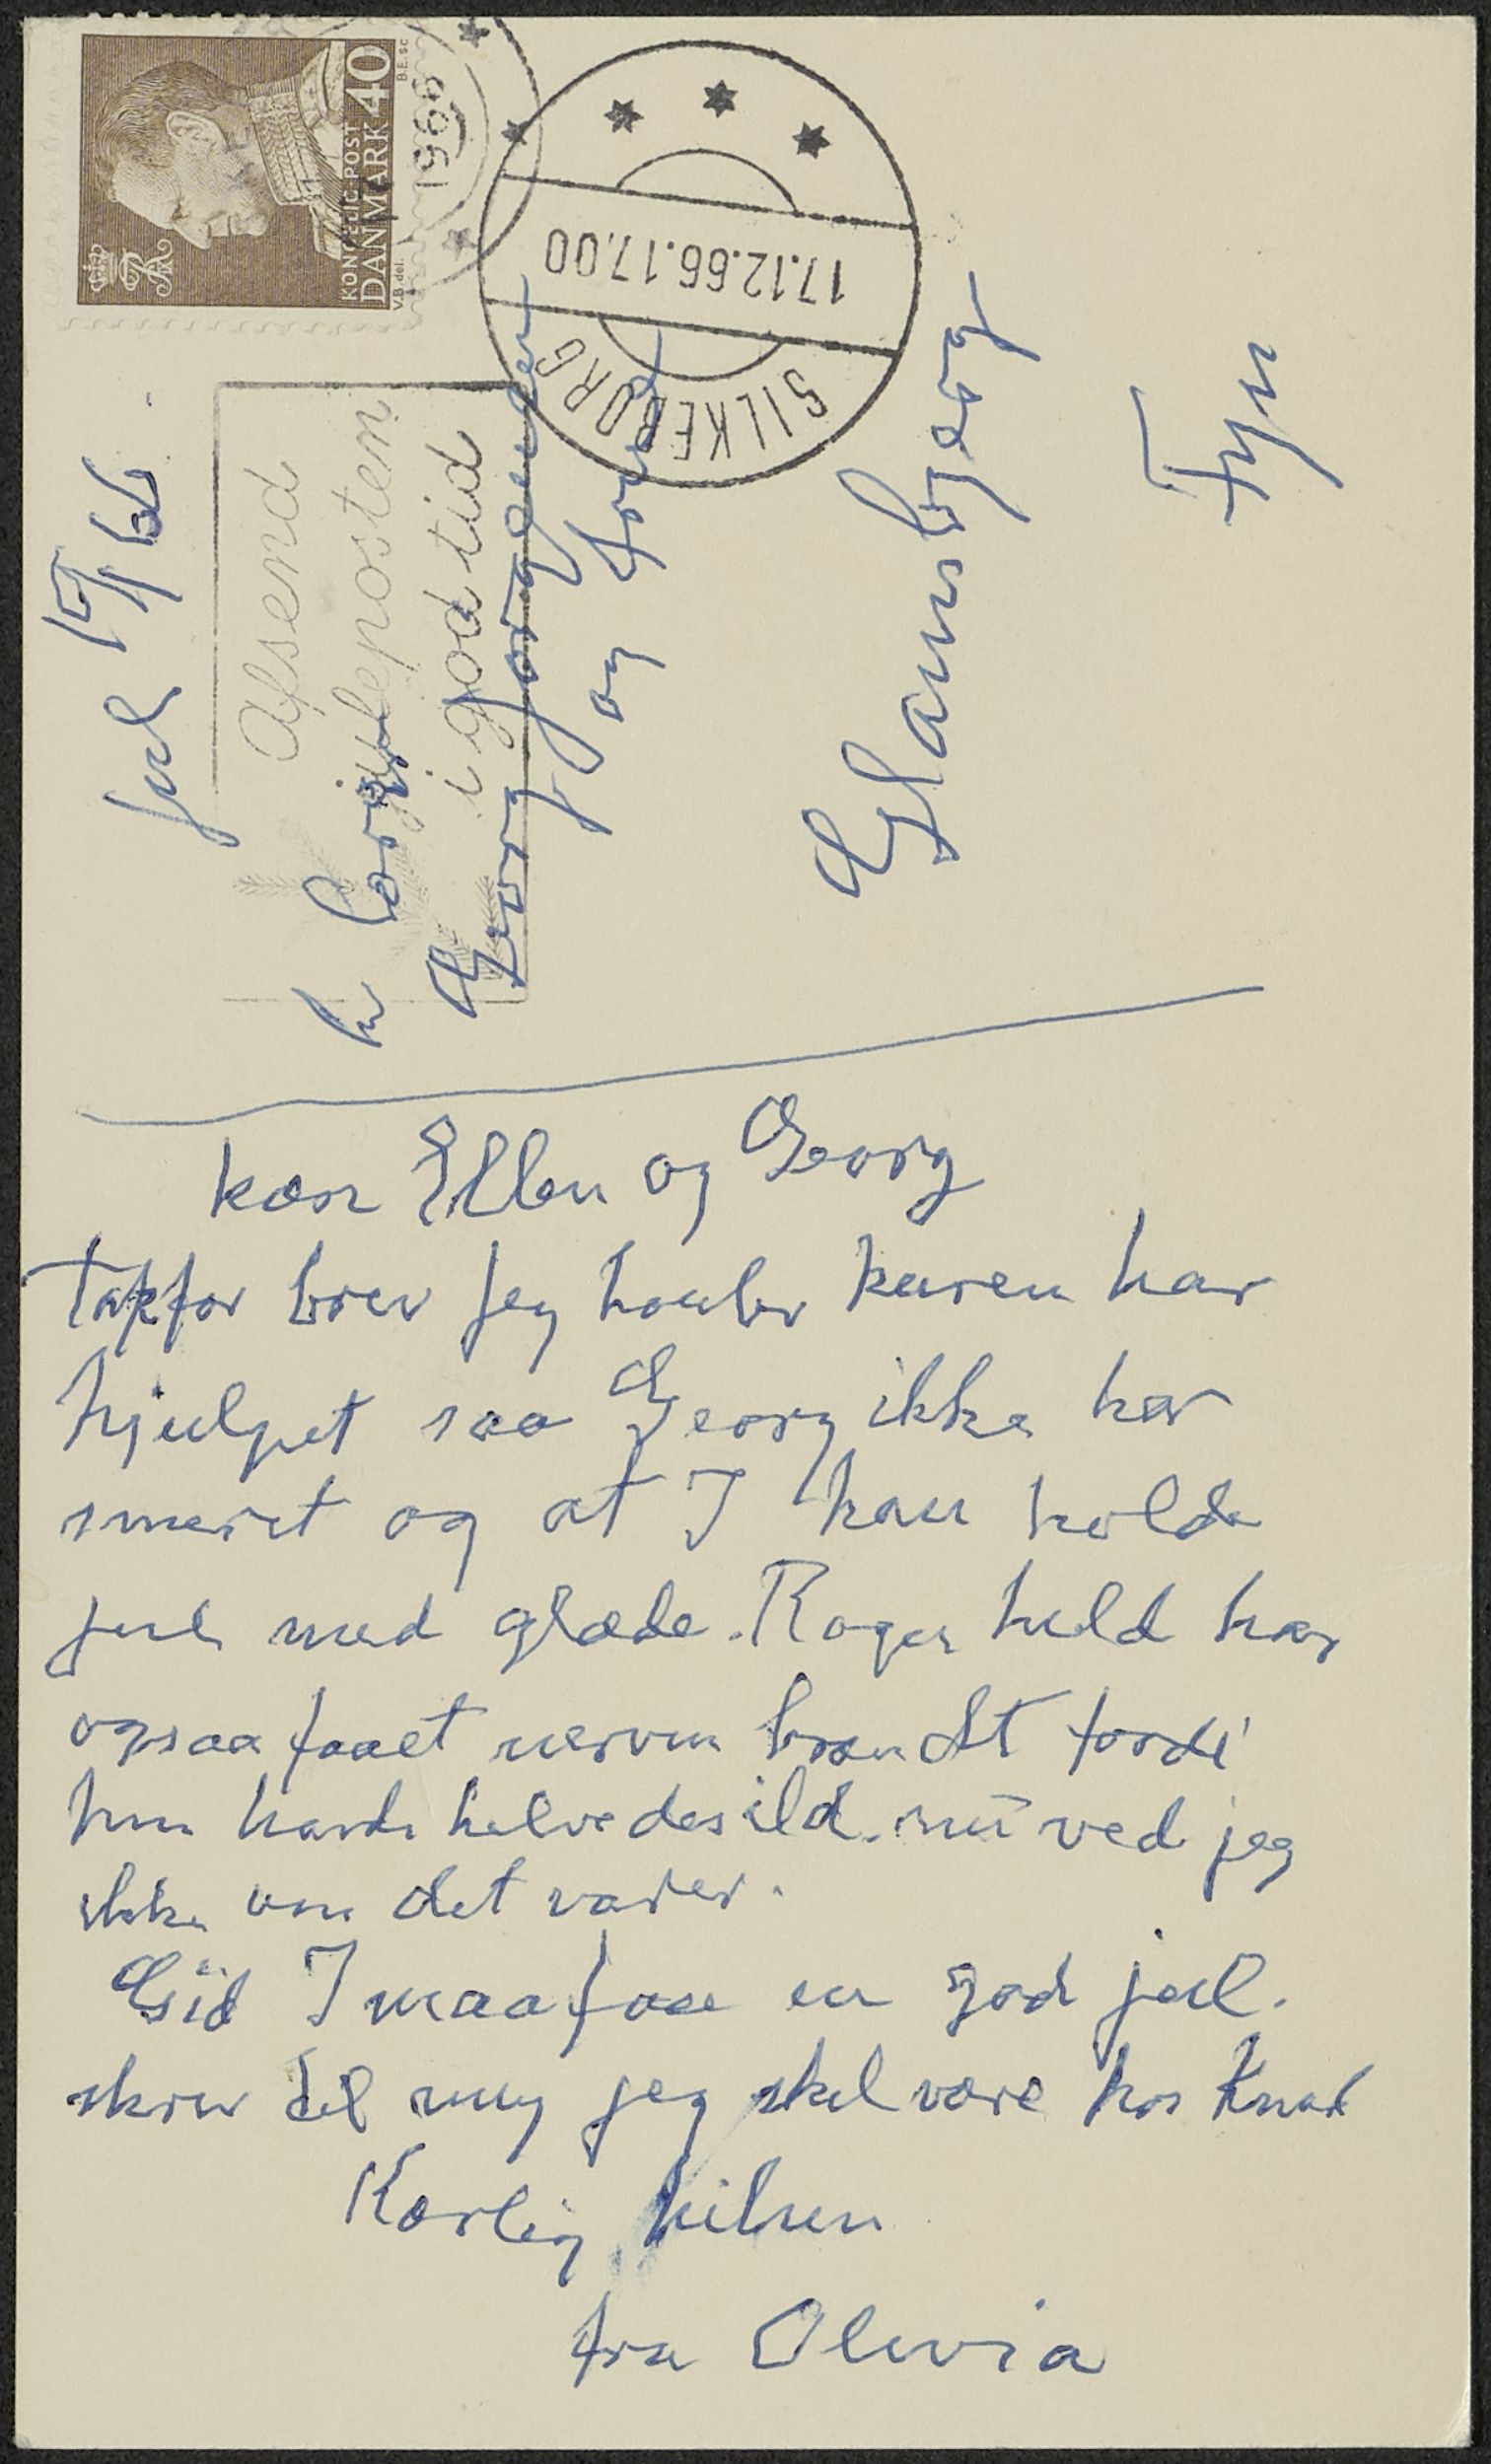 KONGELIG POST
DANMARK 40
V.B. del. B.E. sc
1966
17.12.66.17.00
SILKEBORG
Afsend
juleposten
i god tid
jul 15/12 66
hr
Georg Jørgensen
og frue
Glamsbjerg
Fyn
kære Ellen og Georg
Tak for brev jeg haaber kuren har
hjulpet saa Georg ikke har
smeret og at I kan holde
jul med glæde. Roger huld har
ogsaa faaet nerven brændt fordi
hun havde helvedesild. nu ved jeg
ikke om det varer.
Gid I maa faae en god jul.
skriv til mig jeg skal være hos Knud
Kærlig hilsen
fra Olivia